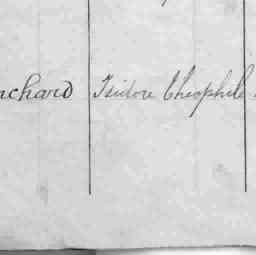 achard Isidore Théophile